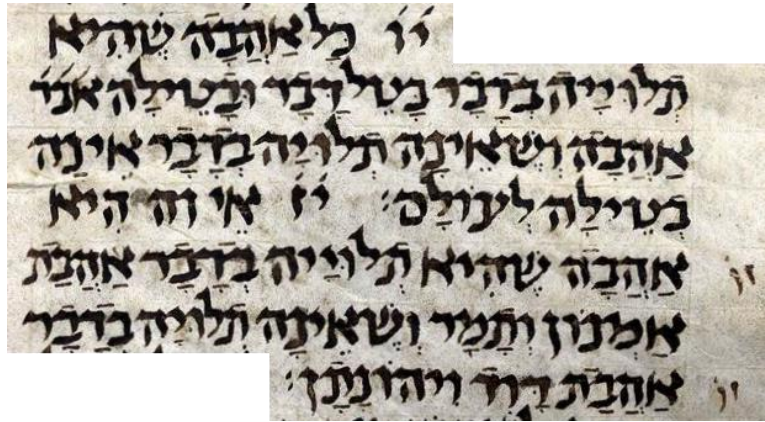 יו כָל אַהֲבָה שֶׁהִיא
תְלוּיָיה בְדָבָר בָטֵל דָבָר וּבְטֵילָה
אַהֲבָה וְשֶׁאֵינָה תְלוּיָה בְדָבָר אֵינָה
בְטֵילָה לְעוֹלָם: יז אֵי זה הִיא
אַהֲבָה שֶׁהִיא תְלוּיָיה בְדָבָר אַהֲבַת
אַמְנוֹן וְתָמָר וְשֶׁאֵינָה תְלוּיָה בְדָבָר
אַהֲבַת דָוִד וִיהוֹנָתָן: